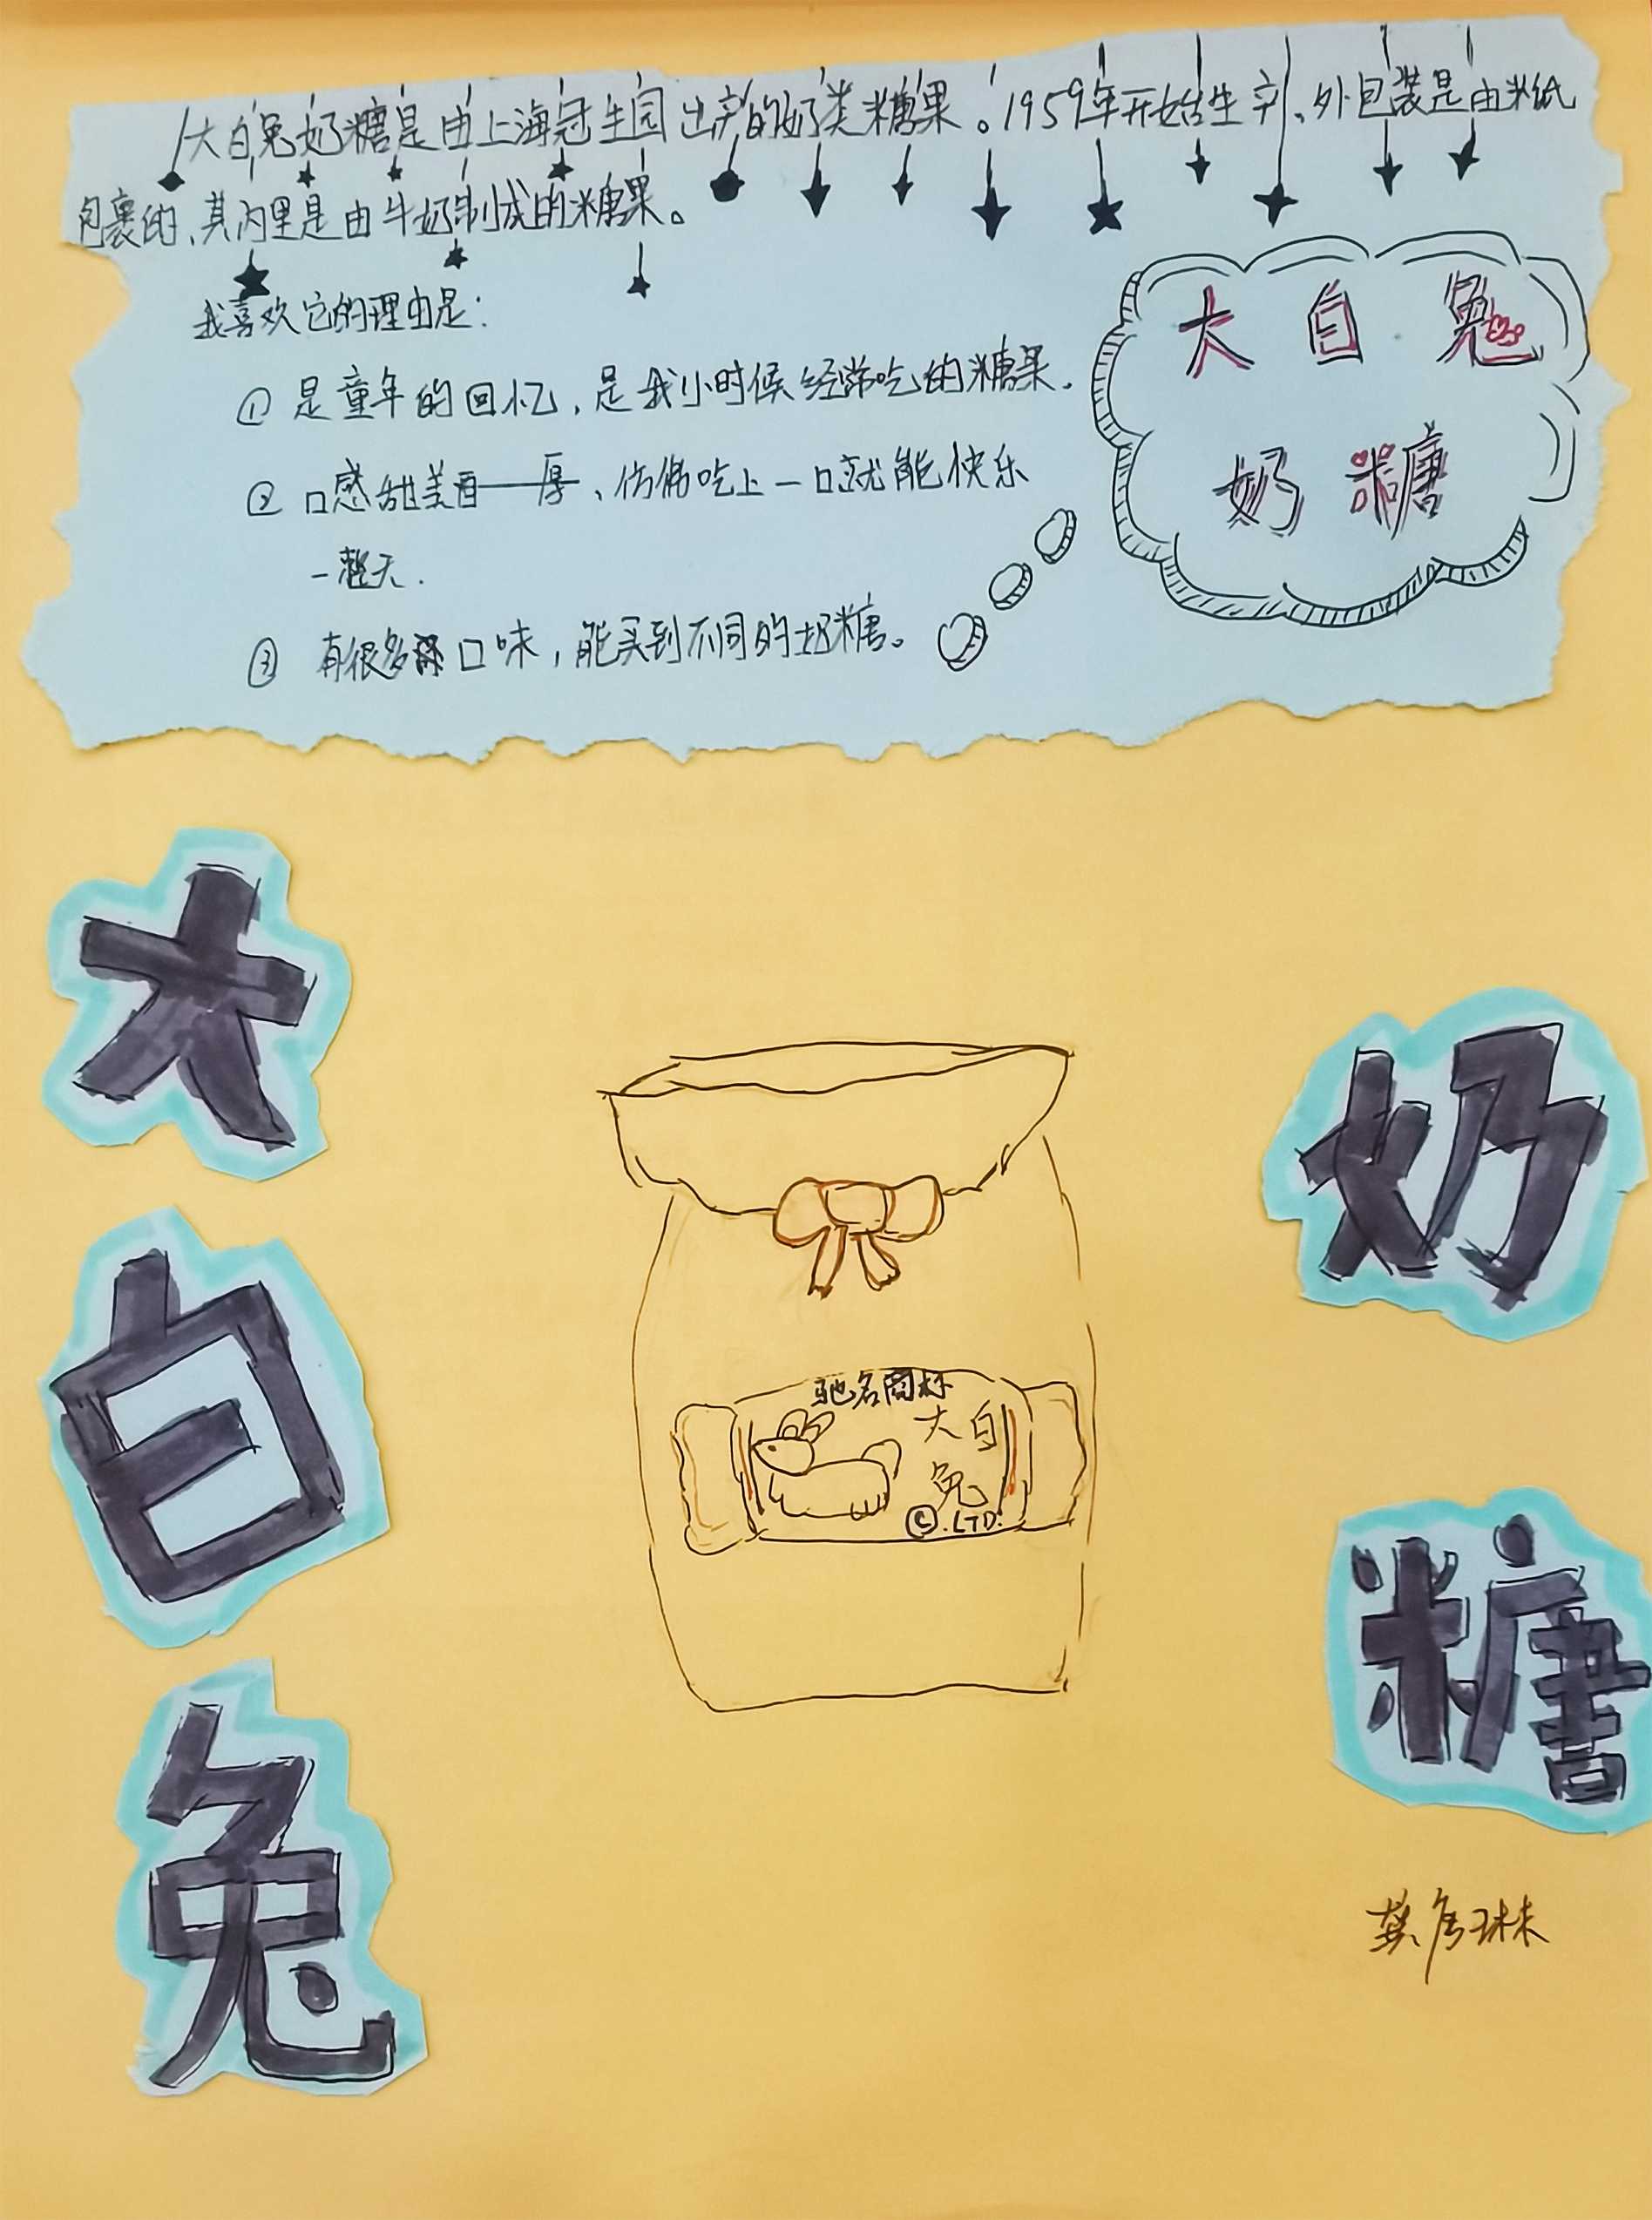 大白兔奶糖是由上海冠生园出产的奶类糖果。1959年开始生产、外包装是由米纸
包裹的、其内里是由牛奶制成的糖果。
我喜欢它的理由是：
① 是童年的回忆，是我小时候经常吃的糖果.
② 口感甜美香——厚、仿佛吃上一口就能快乐
一整天.
③ 有很多 口味，能买到不同的奶糖。
大白兔
奶糖
大
白
兔
奶
糖
驰名商标
大白
兔
©.LTD.